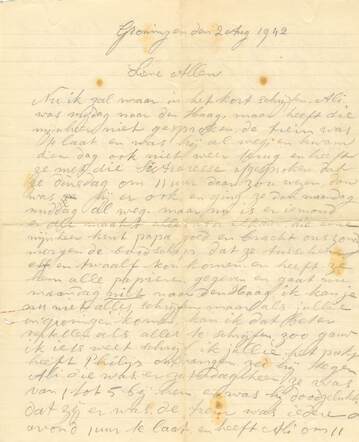 Groningen den 2 Aug 1942
Lieve Allen
Nu ik zal maar in het kort schrijven Ali
was vrijdag naar den Haag, maar heeft die
mijnheer niet gesproken de trein was
laat en was hij al weg en kwam
dien dag ook niet weer terug en heeft
ze met die afgesproken dat
ze Dinsdag om 11 uur daar zou wezen dan
was hij er ook en ging ze dan maandag
middag al weg. maar nu is er iemand
mijnheer kent papa goed en bracht ons zon
morgen de boodschap dat ze tusschen
elf en twaalf kon komen en heeft ze
hem alle papieren gegeven en gaat nu
maandag niet naar den Haag ik kan je
nu niet alles schrijven maar als jullie
in Groningen komen kan ik dat beter
vertellen als alles te schrijven zoo gauw
ik iets weet schrijf ik jullie het pakje
heeft Philip ontvangen zei hij tegen
Ali die was er ze was
van 1 tot 5 bij hem en was hij doodgelukkig
dat zij er was, de trein was iedere
avond 1 uur te laat en heeft Ali om 11